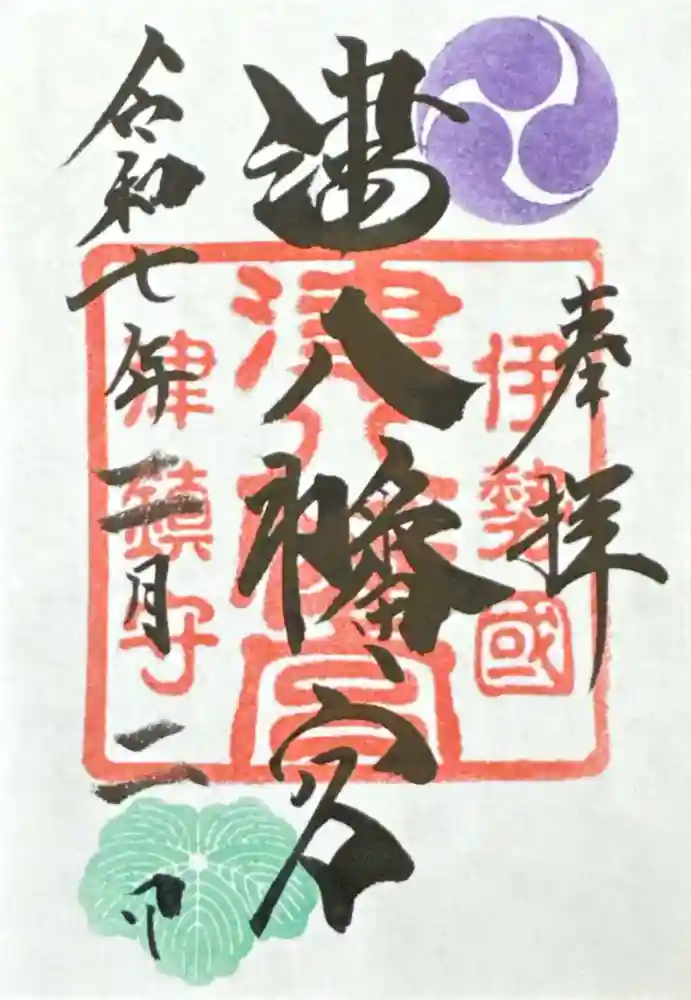 奉拝
津八幡宮
令和七年三月二日
伊勢國
津八幡宮
津鎮守